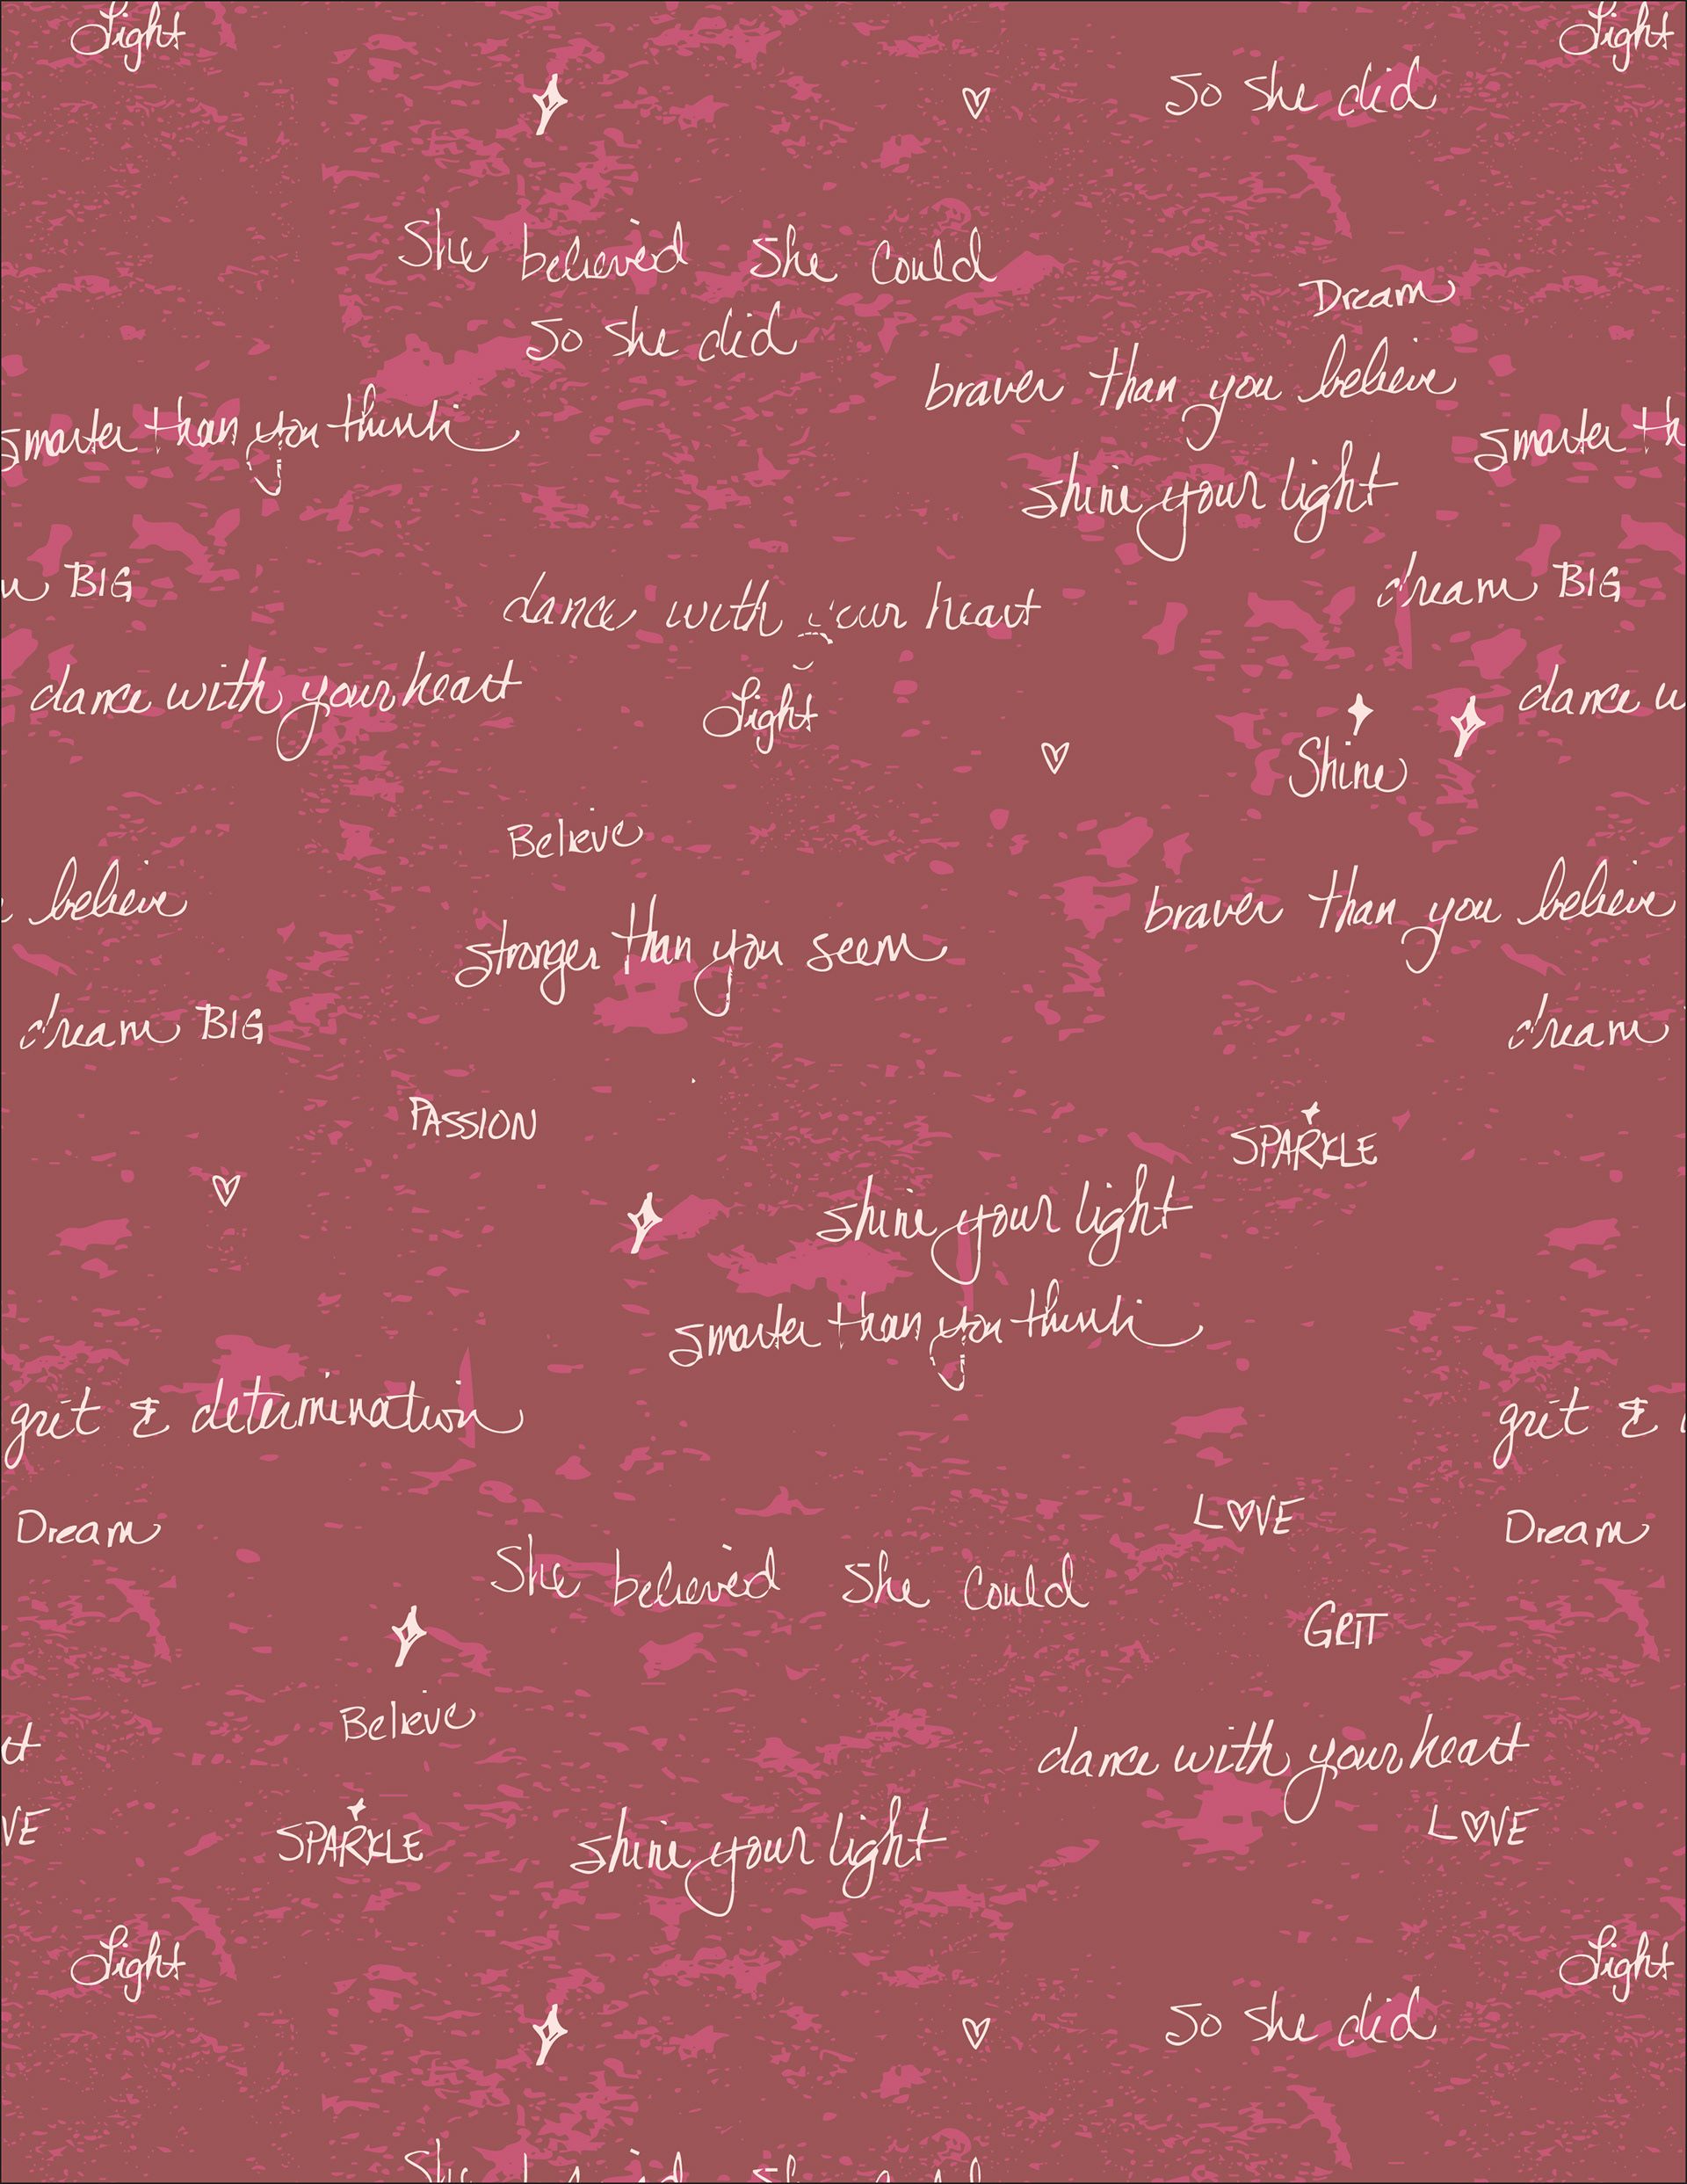 Light
Light
So she did
She believed she could
Dream
So she did
braver than you believe
smarter than you think
smarter th
shine your light
BIG
dream BIG
dance with your heart
dance with your heart
dance w
Light
Shine
Believe
believe
braver than you believe
stronger than you seem
dream BIG
dream
PASSION
SPARKLE
shine your light
smarter than you think
grit & determination
grit &
LOVE
Dream
Dream
She believed she could
GRIT
Believe
dance with your heart
VE
SPARKLE
shine your light
LOVE
Light
Light
So she did